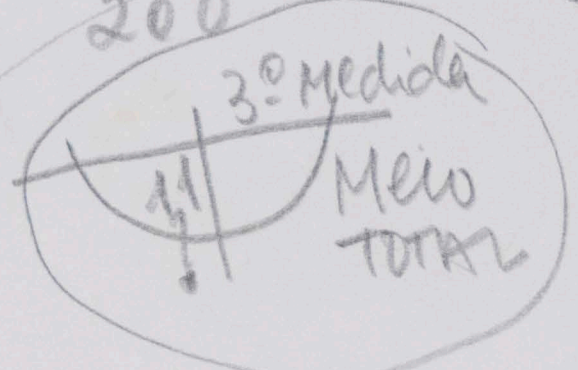 200
3º Medida
11
Meio
TOTAL